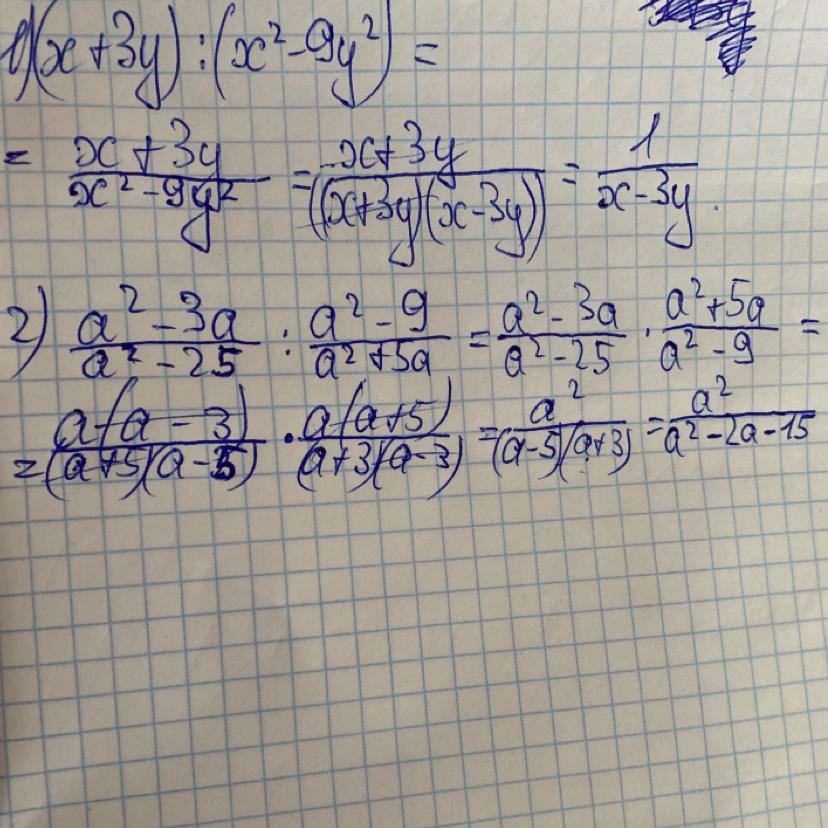 1) (x+3y) : (x² - 9y²) =
= \frac{x+3y}{x²-9y²} = \frac{x+3y}{((x+3y)(x-3y))} = \frac{1}{x-3y}.
2) \frac{a²-3a}{a²-25} : \frac{a²-9}{a²+5a} = \frac{a²-3a}{a²-25} · \frac{a²+5a}{a²-9} =
= \frac{a(a-3)}{(a+5)(a-5)} · \frac{a(a+5)}{(a+3)(a-3)} = \frac{a²}{(a-5)(a+3)} = \frac{a²}{a²-2a-15}